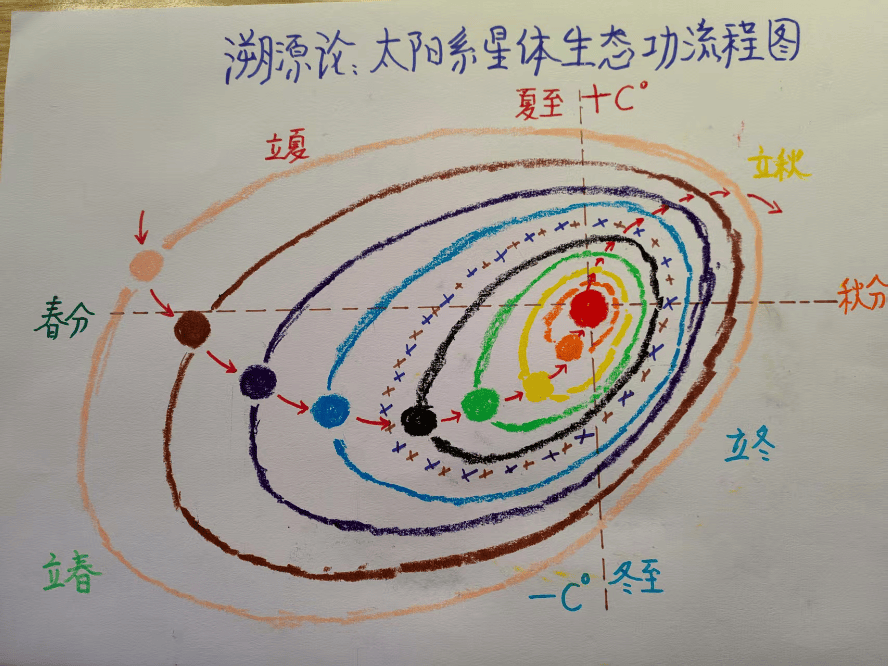 溯源论:太阳系星体生态功流程图
夏至 +C°
立夏
立秋
春分
秋分
立冬
立春
-C° 冬至